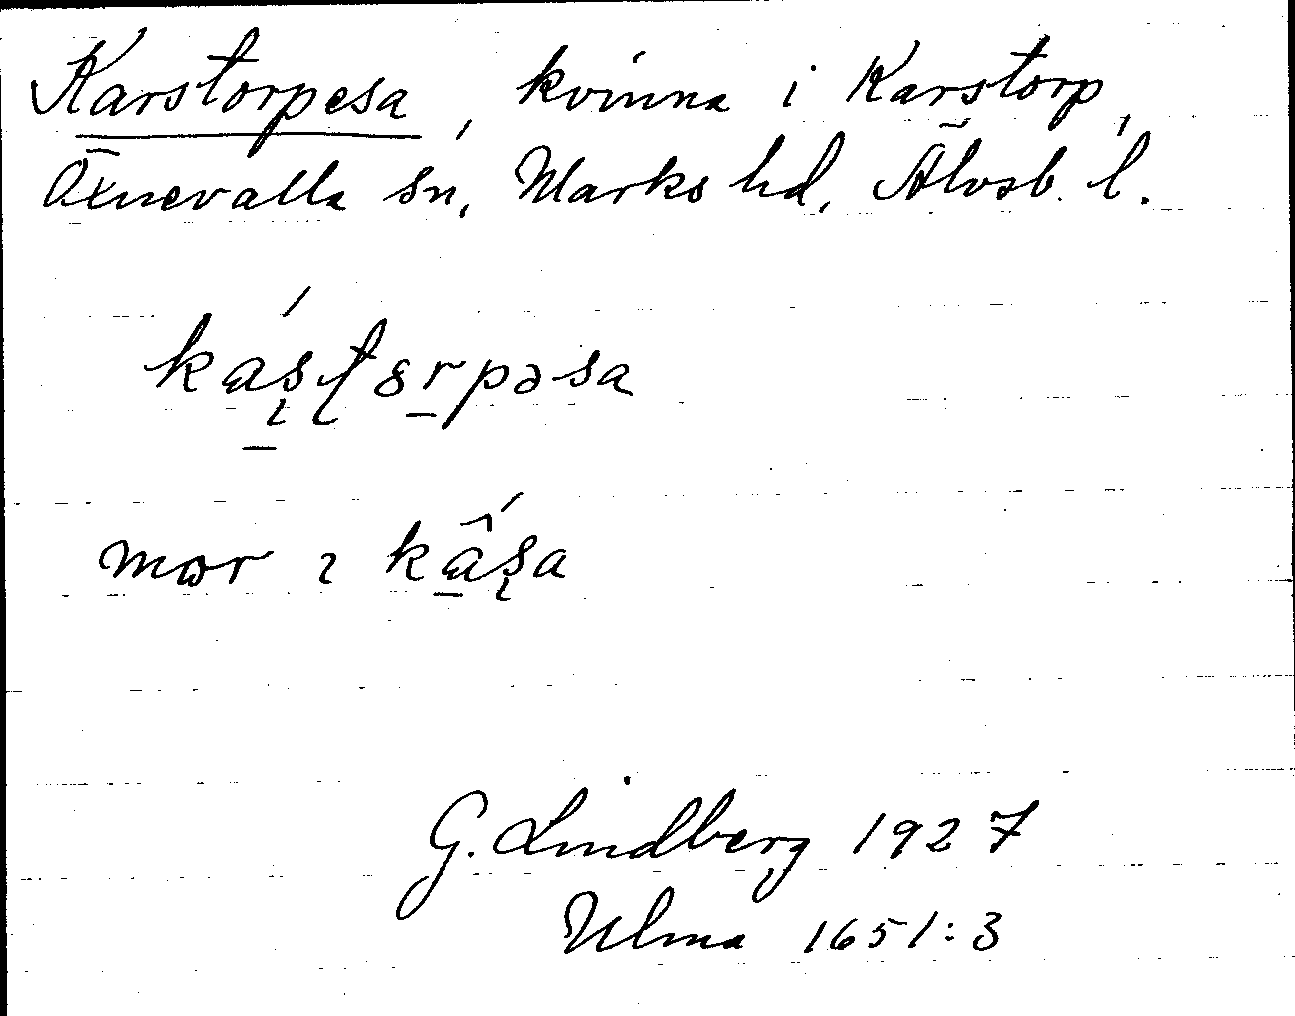 Karstorpesa, kvinna i Karstorp,
Öxnevalla sn, Marks hd, Älvsb. l.
ká̱ʂʈ8ṟpəsa
mɷr ı kấ̱ʂa
G. Lindberg 1927
Ulma 1651:3